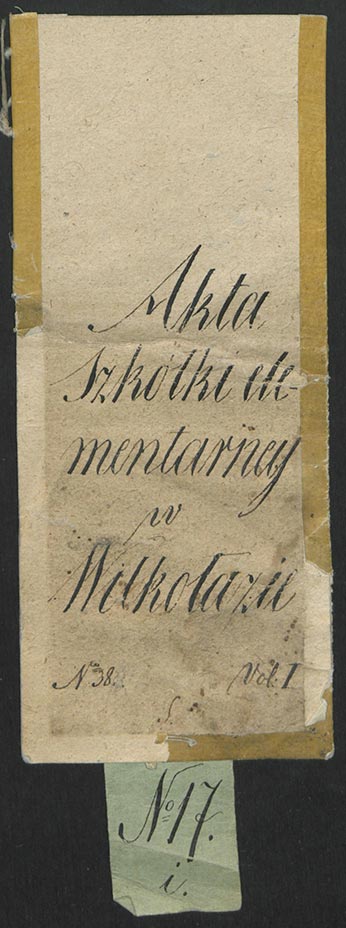 Akta
Szkółki ele-
mentarney
w
Wilkołazie
No 38. Vol. I
S.
No 17.
i.